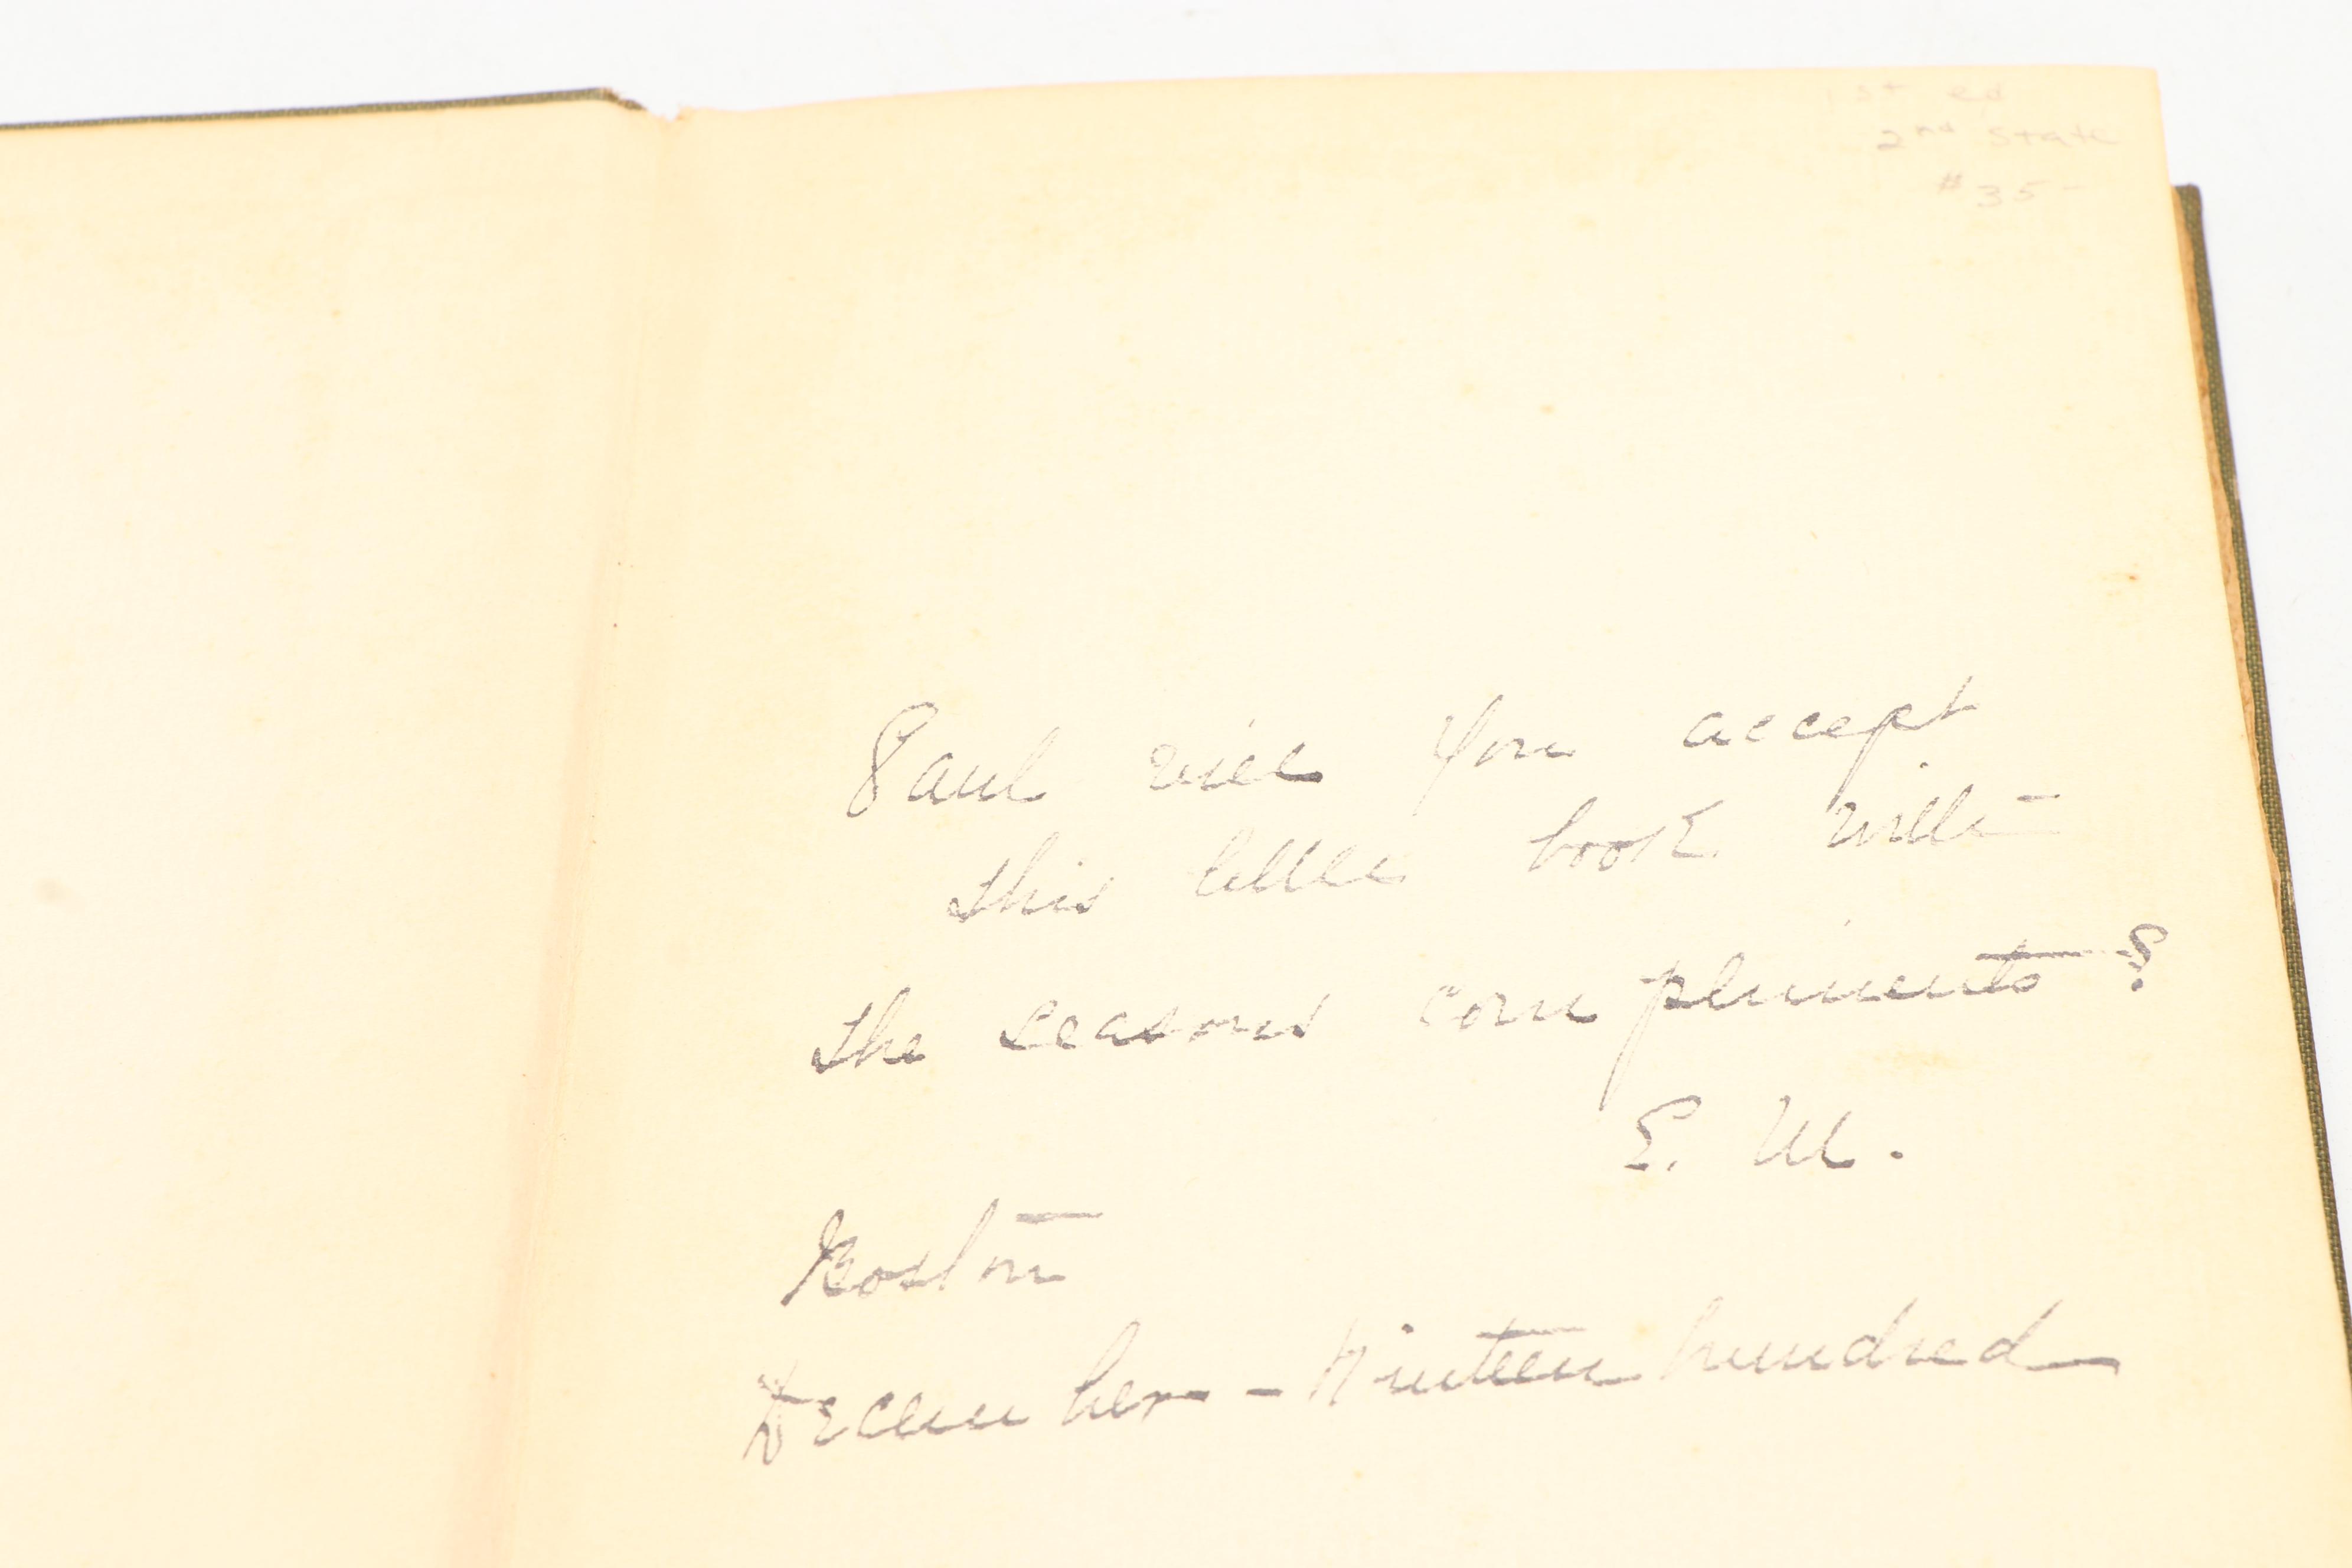 1st ed
2nd State
#35-
Paul will you accept
this little book with
the seasons compliments?
E. W.
Boston
December - Nineteen hundred